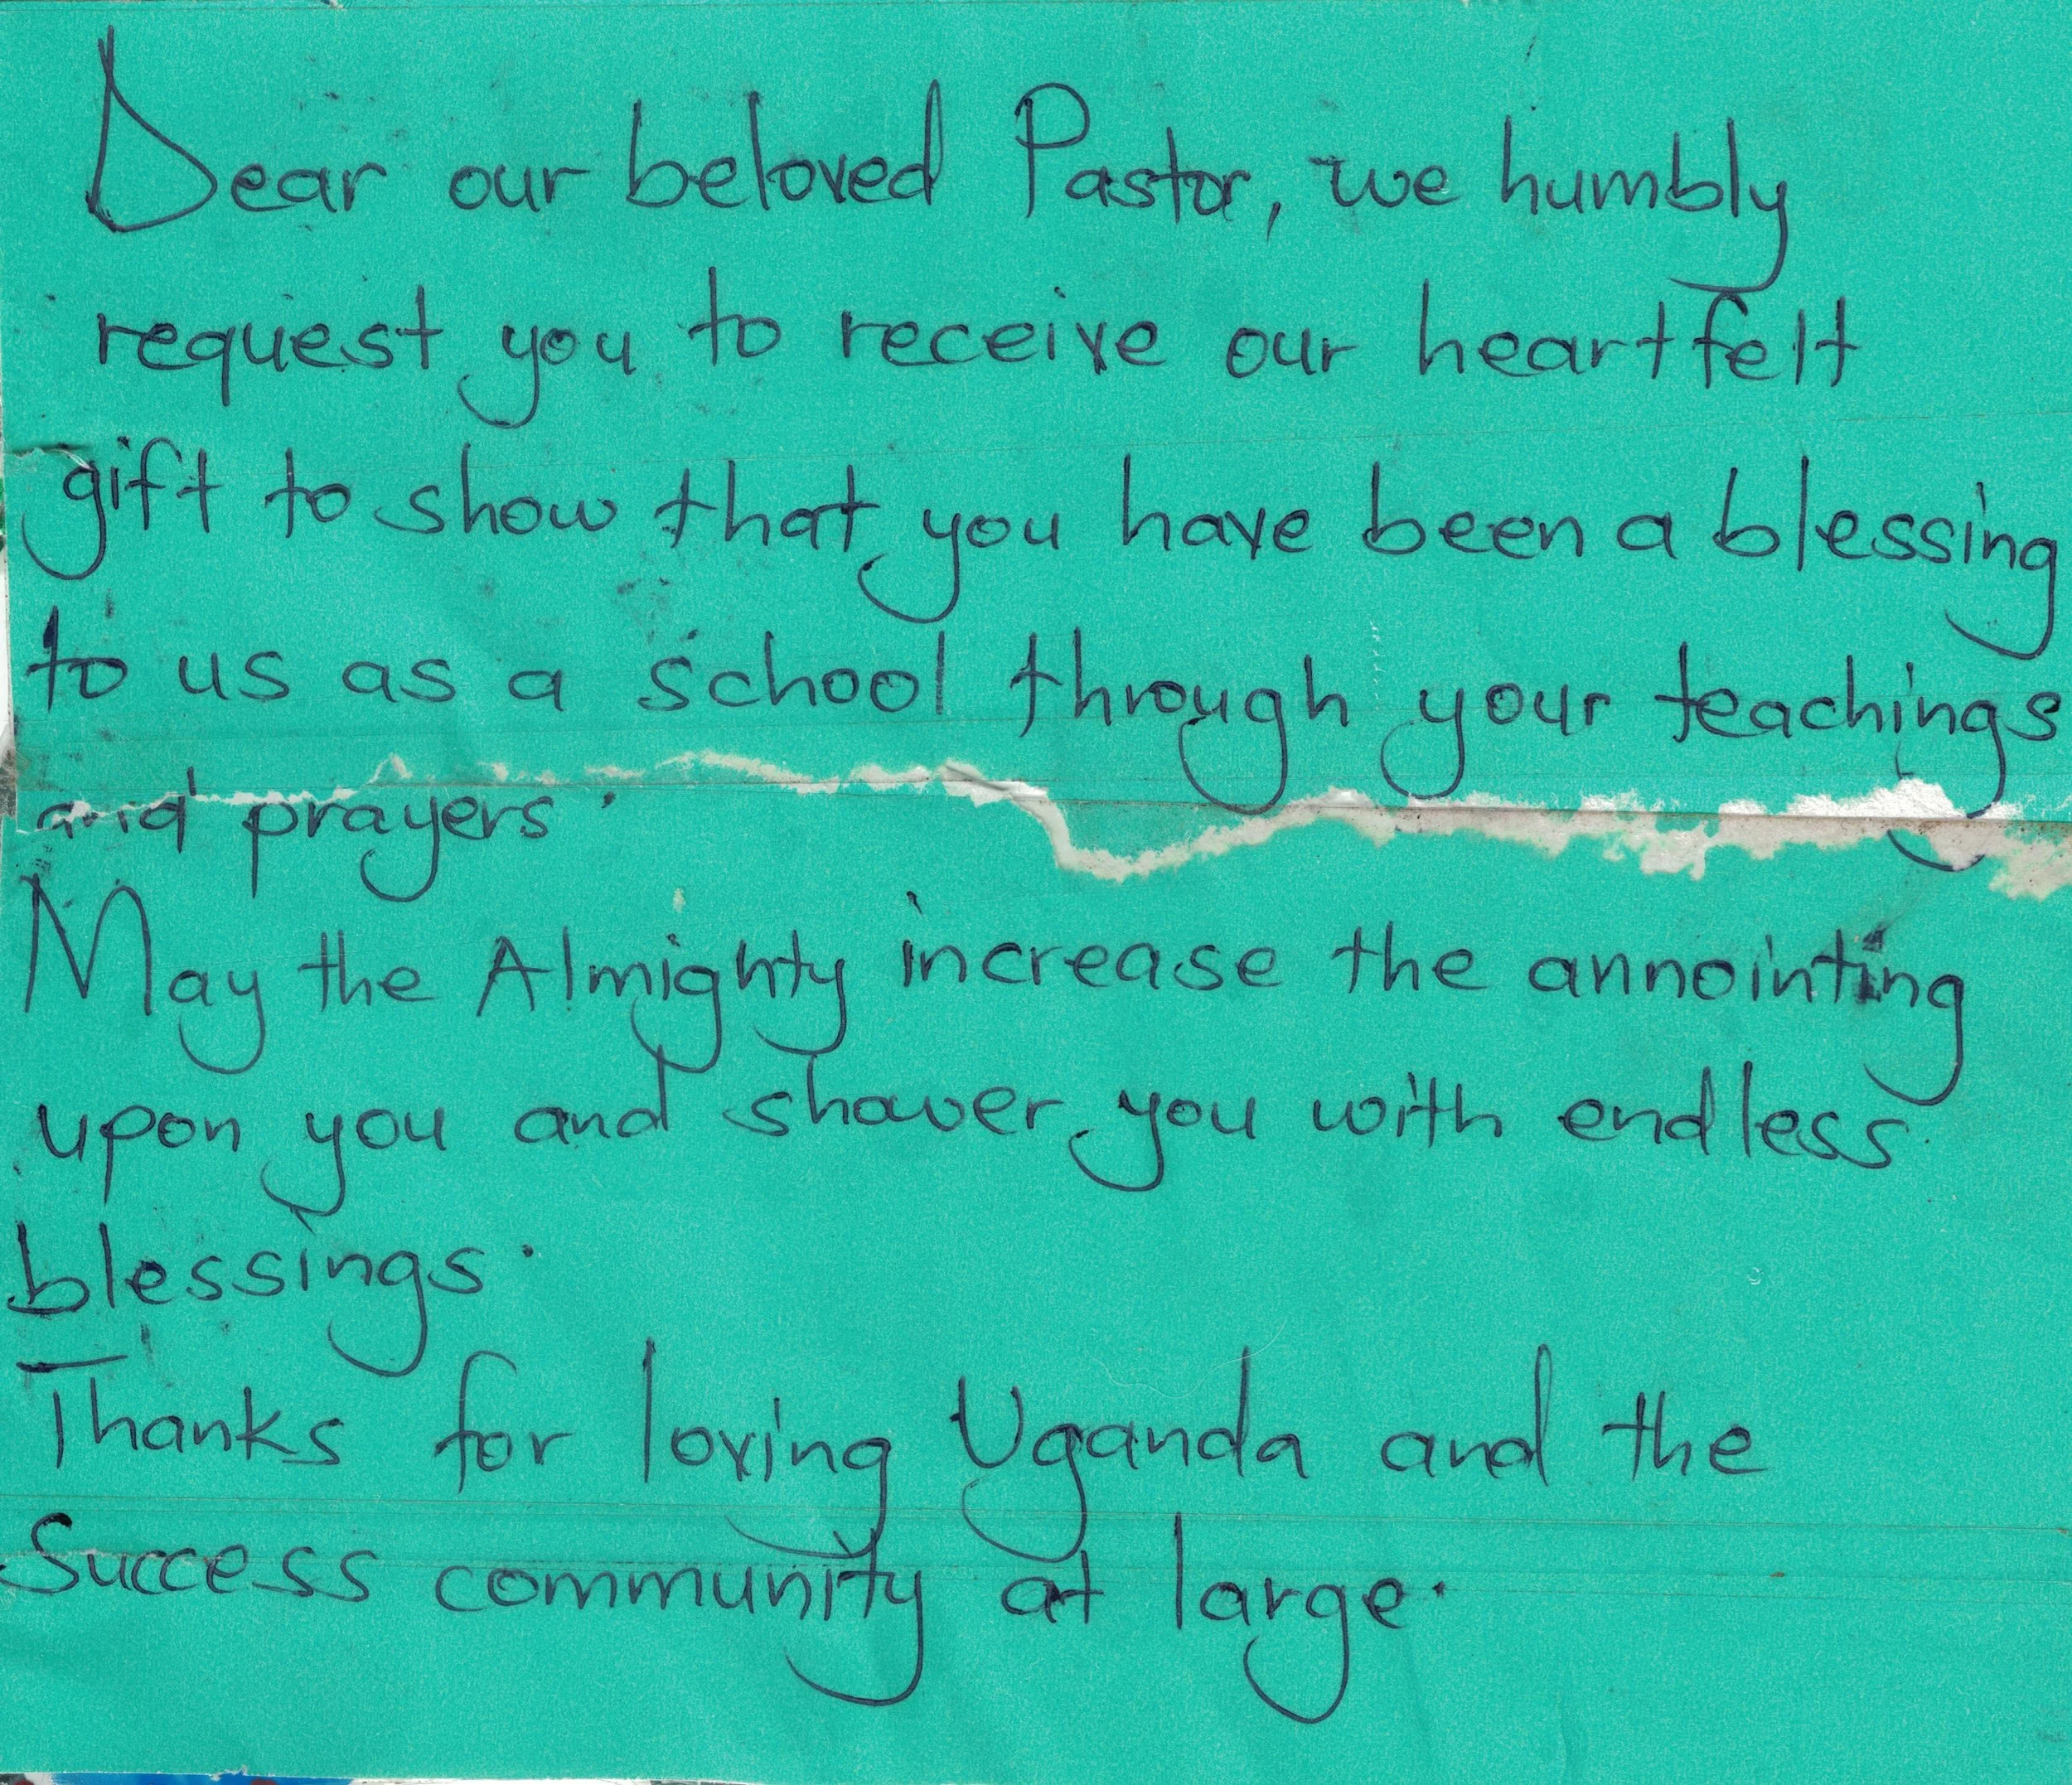 Dear our beloved Pastor, we humbly
request you to receive our heartfelt
gift to show that you have been a blessing
to us as a school through your teachings
and prayers.
May the Almighty increase the annointing
upon you and shower you with endless
blessings.
Thanks for loving Uganda and the
Success community at large.